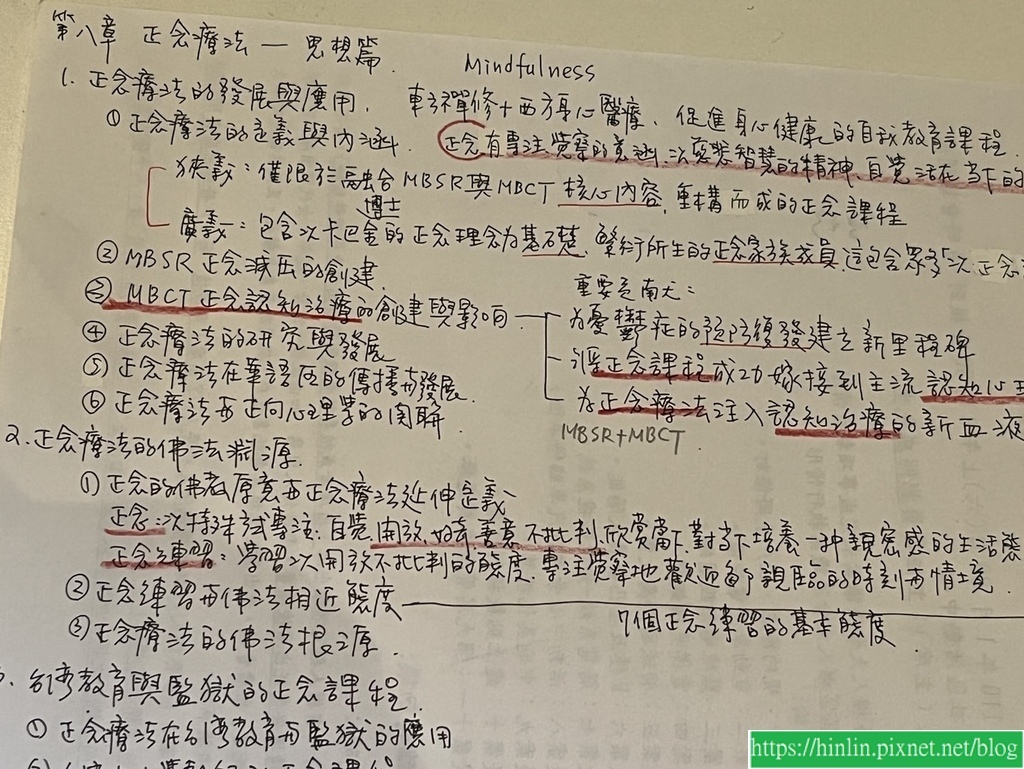 第八章 正念療法 — 思想篇. Mindfulness
1. 正念療法的發展與應用. 東方禪修+西方身心醫療、促進身心健康的自我教育課程
① 正念療法的定義與內涵. 正念有專注覺察的意涵.以慈悲智慧的精神、自覺活在當下的
狹義：僅限於融合MBSR與MBCT核心內容,重構而成的正念課程
廣義：包含以卡巴金博士的正念理念為基礎、繁衍所生的正念家族成員.這包含眾多以正念
② MBSR正念減压的創建.
③ MBCT正念認知治療的創建與影响
重要是南大：
為憂鬱症的預防復發建立新里程碑
④ 正念療法的研究與發展
讓正念課程成功嫁接到主流認知心
⑤ 正念療法在華語区的傳播与發展.
為正念療法注入認知治療的新血液
⑥ 正念療法与正向心理學的関聯
MBSR+MBCT
2. 正念療法的佛法淵源.
① 正念的佛教原意与正念療法延伸定義
正念：以特殊方式專注.自覺.開放.好奇善意不批判.欣賞當下.對當下培養一种親密感的生活態
正念練習：學習以開放不批判的態度.專注覺察地歡迎每个親臨的時刻与情境.
② 正念練習与佛法相近態度
7個正念練習的基本態度
③ 正念療法的佛法根源.
3. 台湾教育與監獄的正念課程.
① 正念療法在台湾教育与監獄的應用
https://hinlin.pixnet.net/blog